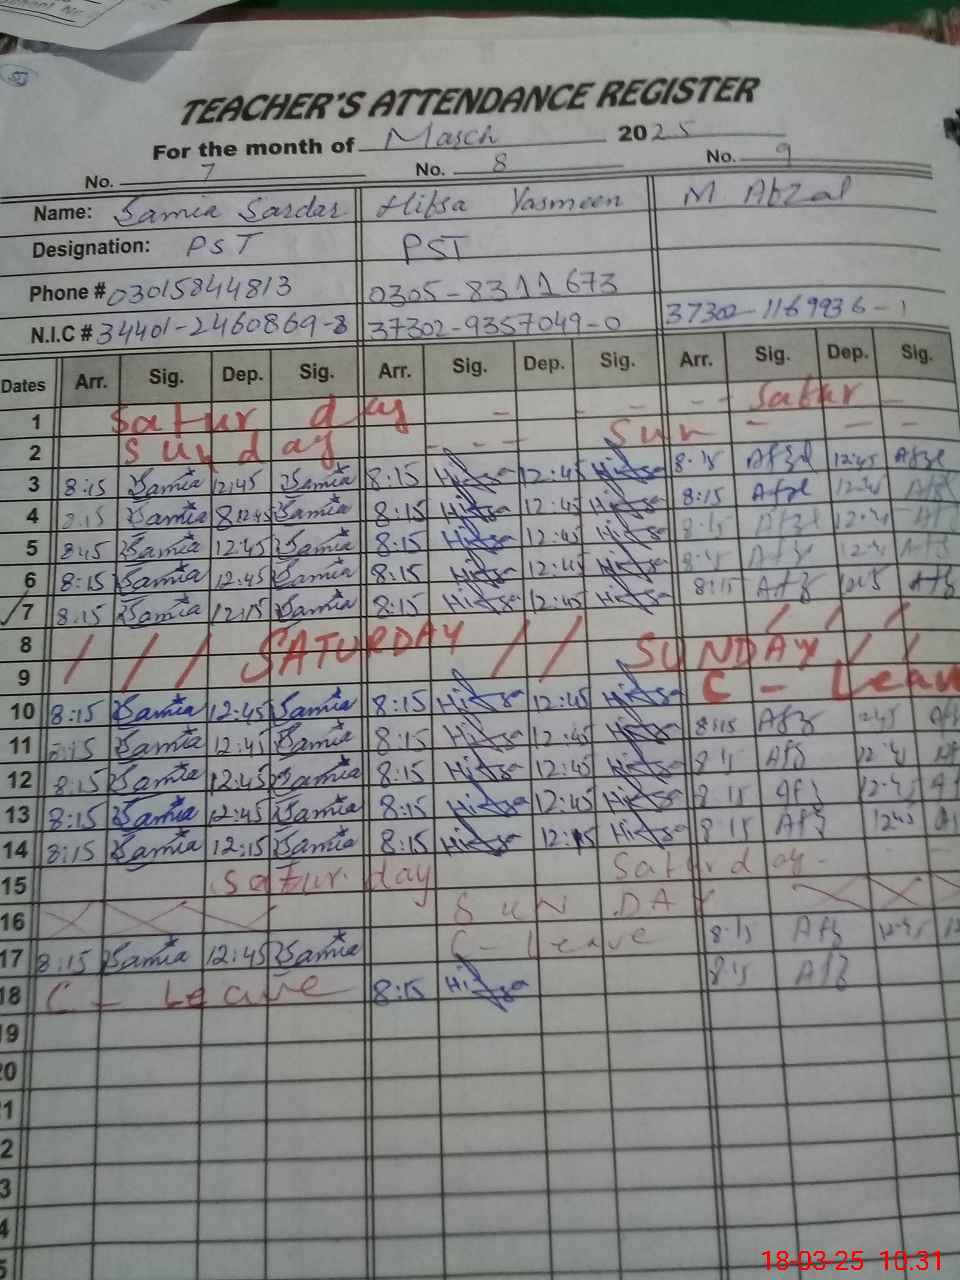 TEACHER'S ATTENDANCE REGISTER
For the month of March 2025
No. 7 No. 8 No. 9
Name: Samia Sardar Hifsa Yasmeen M Afzal
Designation: PST PST
Phone # 03015844813 0305-8311673
N.I.C # 34401-2460869-8 37302-9357049-0 37302-1169936-1
Dates Arr. Sig. Dep. Sig. Arr. Sig. Dep. Sig. Arr. Sig. Dep. Sig.
1 Saturday - - - - - Satur -
2 Sunday - - - Sun - - -
3 8:15 Samia 12:45 Samia 8:15 Hifsa 12:45 Hifsa 8:15 Afzl 12:45 Afzl
4 8:15 Samia 12:45 Samia 8:15 Hifsa 12:45 Hifsa 8:15 Afzl
5 8:45 Samia 12:45 Samia 8:15 Hifsa 12:45 Hifsa 8:15 Afzl
6 8:15 Samia 12:45 Samia 8:15 Hifsa 12:45 Hifsa 8:15 Afz
7 8:15 Samia 12:15 Samia 8:15 Hifsa 12:45 Hifsa 8:15 Afz Afz
8 SATURDAY
9 SUNDAY
10 8:15 Samia 12:45 Samia 8:15 Hifsa 12:45 Hifsa C - Leave
11 8:15 Samia 12:45 Samia 8:15 Hifsa 12:45 Hifsa 8:15 Afz 12:45
12 8:15 Samia 12:45 Samia 8:15 Hifsa 12:45 Hifsa Afz
13 8:15 Samia 12:45 Samia 8:15 Hifsa 12:45 Hifsa 8:15 Afz 12:45
14 8:15 Samia 12:15 Samia 8:15 Hifsa 12:15 Hifsa 8:15 Afz 12:45
15 Saturday Saturday -
16 SUNDAY
17 8:15 Samia 12:45 Samia C - leave 8:15 Afz 12:45
18 C - Leave 8:15 Hifsa 8:15 Afz
19
20
18-03-25 10:31